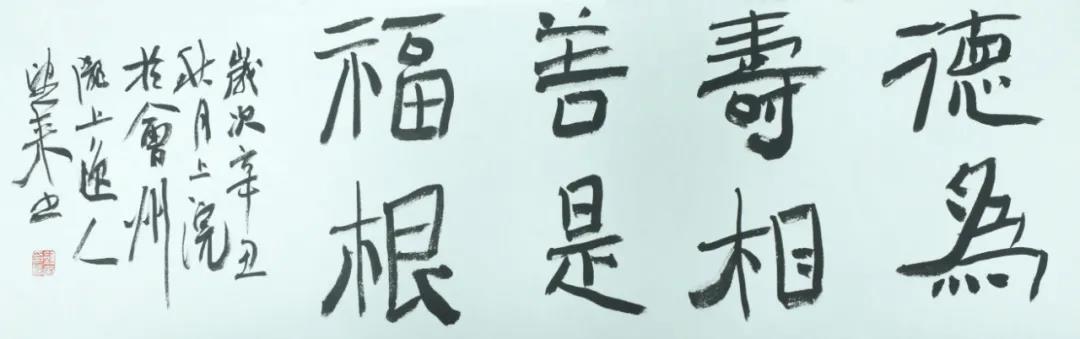 德為
壽相
善是
福根
歲次辛丑
秋月上浣
於會州
隴上逸人
書